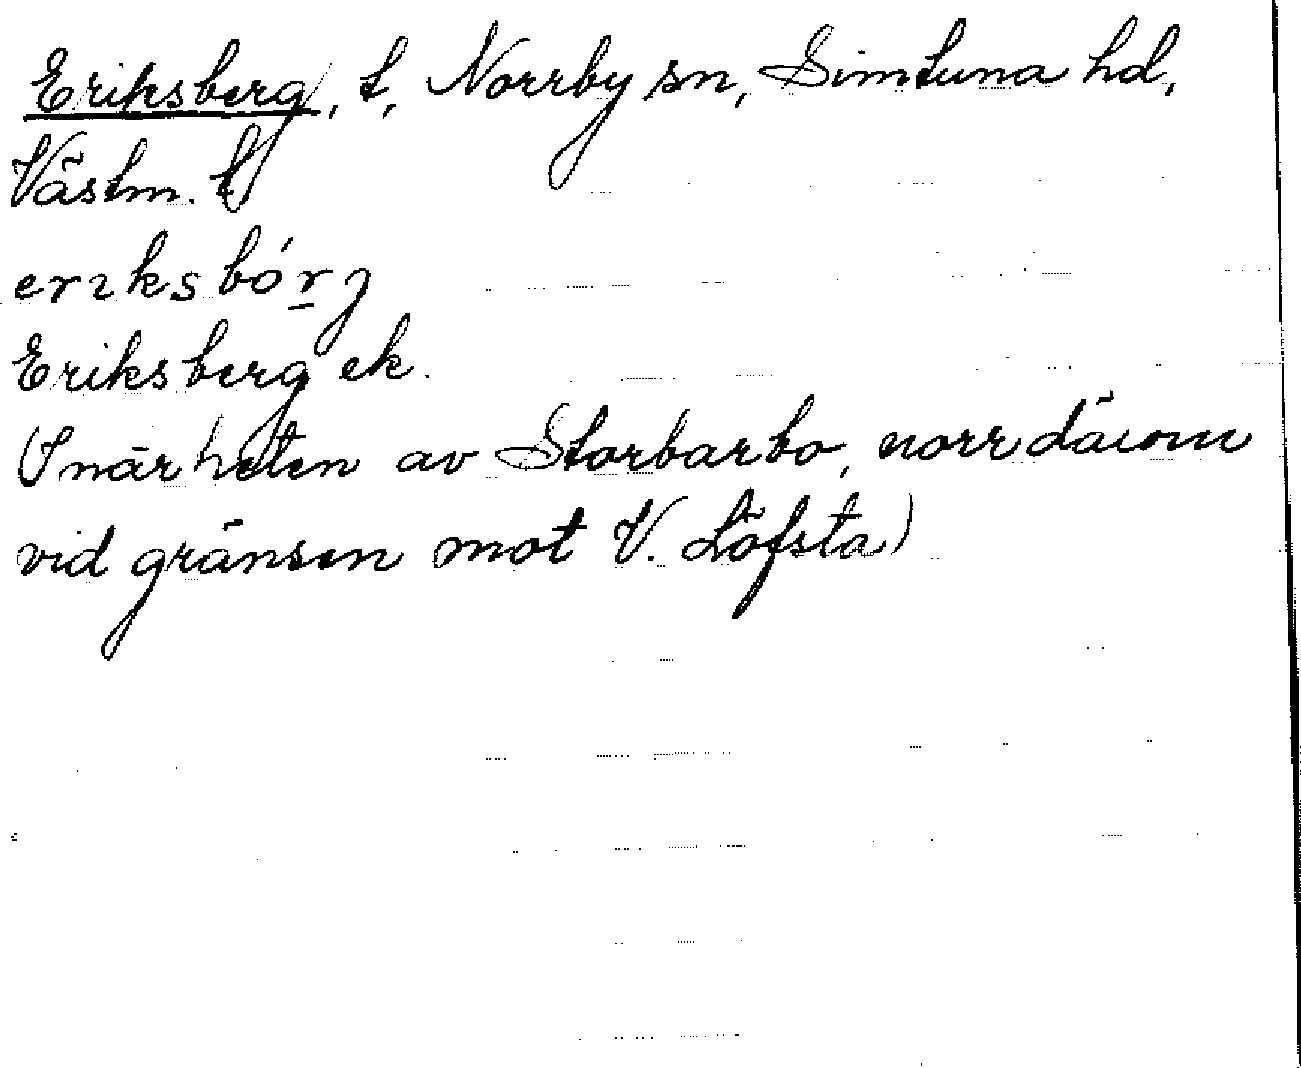 Eriksberg, t, Norrby sn, Simtuna hd,
Västm. l
erıksbór̲j
Eriksberg ek.
(I närheten av Storbarbo, norr därom
vid gränsen mot V. Löfsta)